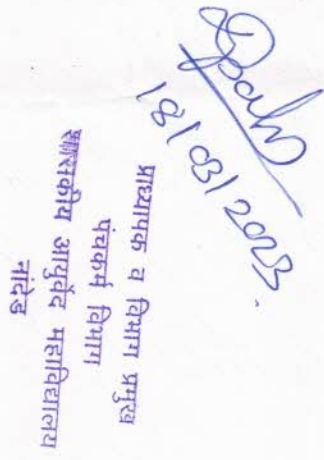 18/03/2023.
प्राध्यापक व विभाग प्रमुख
पंचकर्म विभाग
शासकीय आयुर्वेद महाविद्यालय
नांदेड